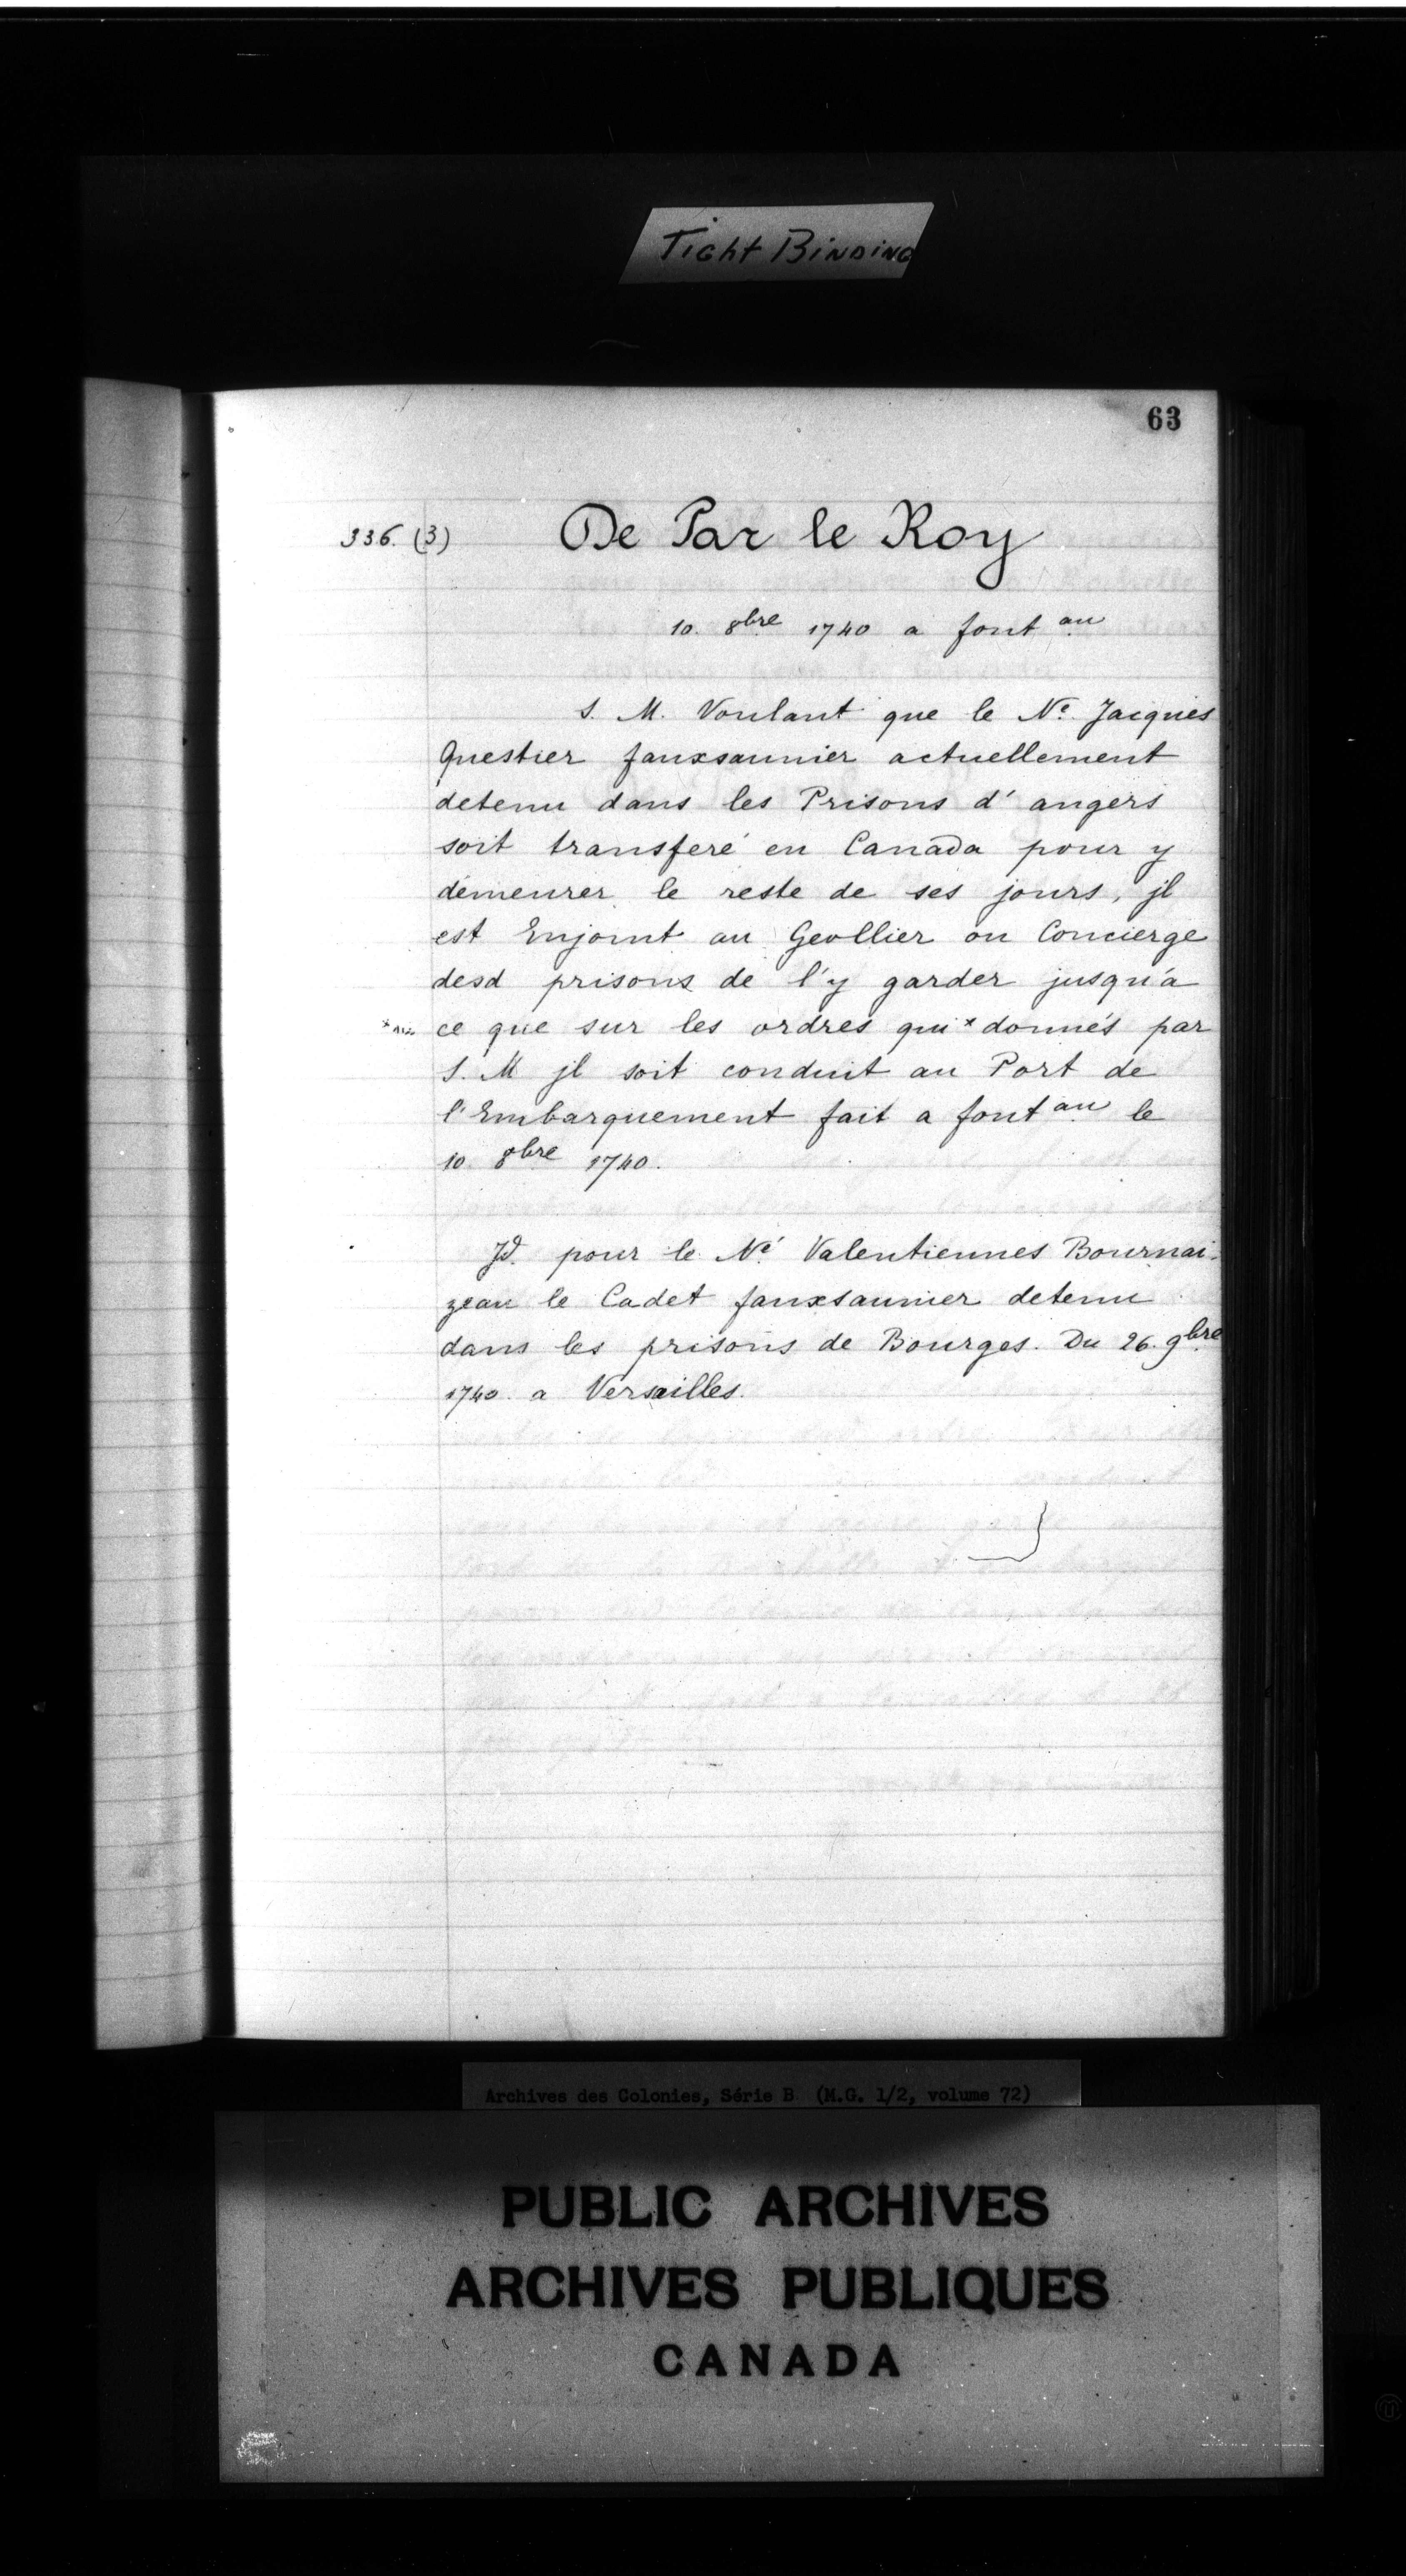 Tight Binding
63
336. (3)
De Par le Roy
10. 8bre 1740 a font au
S. M. Voulant que le Né. Jacques
Questier fauxsaunier actuellement
detenu dans les Prisons d'angers
soit transferé en Canada pour y
demeurer le reste de ses jours, jl
est Enjoint au Geollier ou Concierge
desd prisons de l'y garder jusqu'a
ce que sur les ordres qui x donnés par
S. M jl soit conduit au Port de
l'Embarquement fait a font au le
10 8bre 1740.
Jd. pour le Né. Valentiennes Bournai-
zeau le Cadet fauxsaunier detenu
dans les prisons de Bourges. Du 26. 9bre
1740. a Versailles.
Archives des Colonies, Série B (M.G. 1/2, volume 72)
PUBLIC ARCHIVES
ARCHIVES PUBLIQUES
CANADA